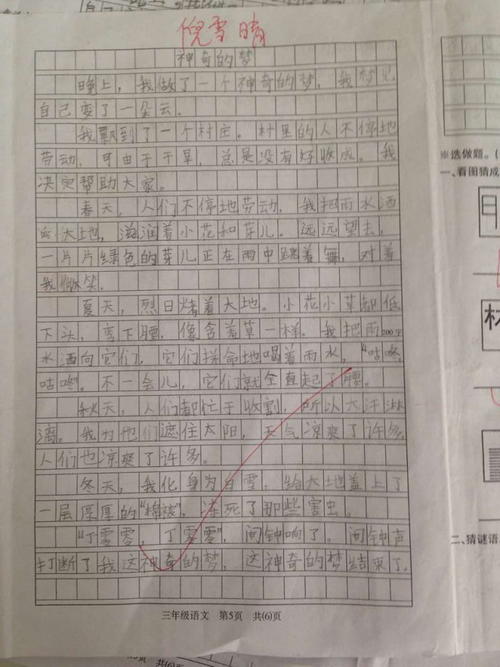 倪雪晴
神奇的梦
晚上，我做了一个神奇的梦，我梦见
自己变了一朵云。
我飘到了一个村庄。村里的人不停地
劳动，可由于干旱，总是没有好收成。我
决定帮助大家。
春天，人们不停地劳动，我把雨水洒
向大地，滋润着小花和芽儿。远远望去，
一片片绿色的芽儿正在雨中跳着舞，对着
我微笑。
夏天，烈日烤着大地。小花小草都低
下头，弯下腰，像含羞草一样。我把雨
200字
水洒向它们，它们拼命地喝着雨水，“咕咚，
咕咚。不一会儿，它们就全直起了腰。
秋天，人们都忙于收割，所以大汗淋
漓。我为他们遮住太阳，天气凉爽了许多，
人们也凉爽了许多。
冬天，我化身为白雪，给大地盖上了
一层厚厚的“棉被”，冻死了那些害虫。
“丁零零，丁零零”，闹钟响了。闹钟声
打断了我这神奇的梦，这神奇的梦结束了。
三年级语文 第5页 共(6)页
※选做题。(
一、看图猜成
二、猜谜语